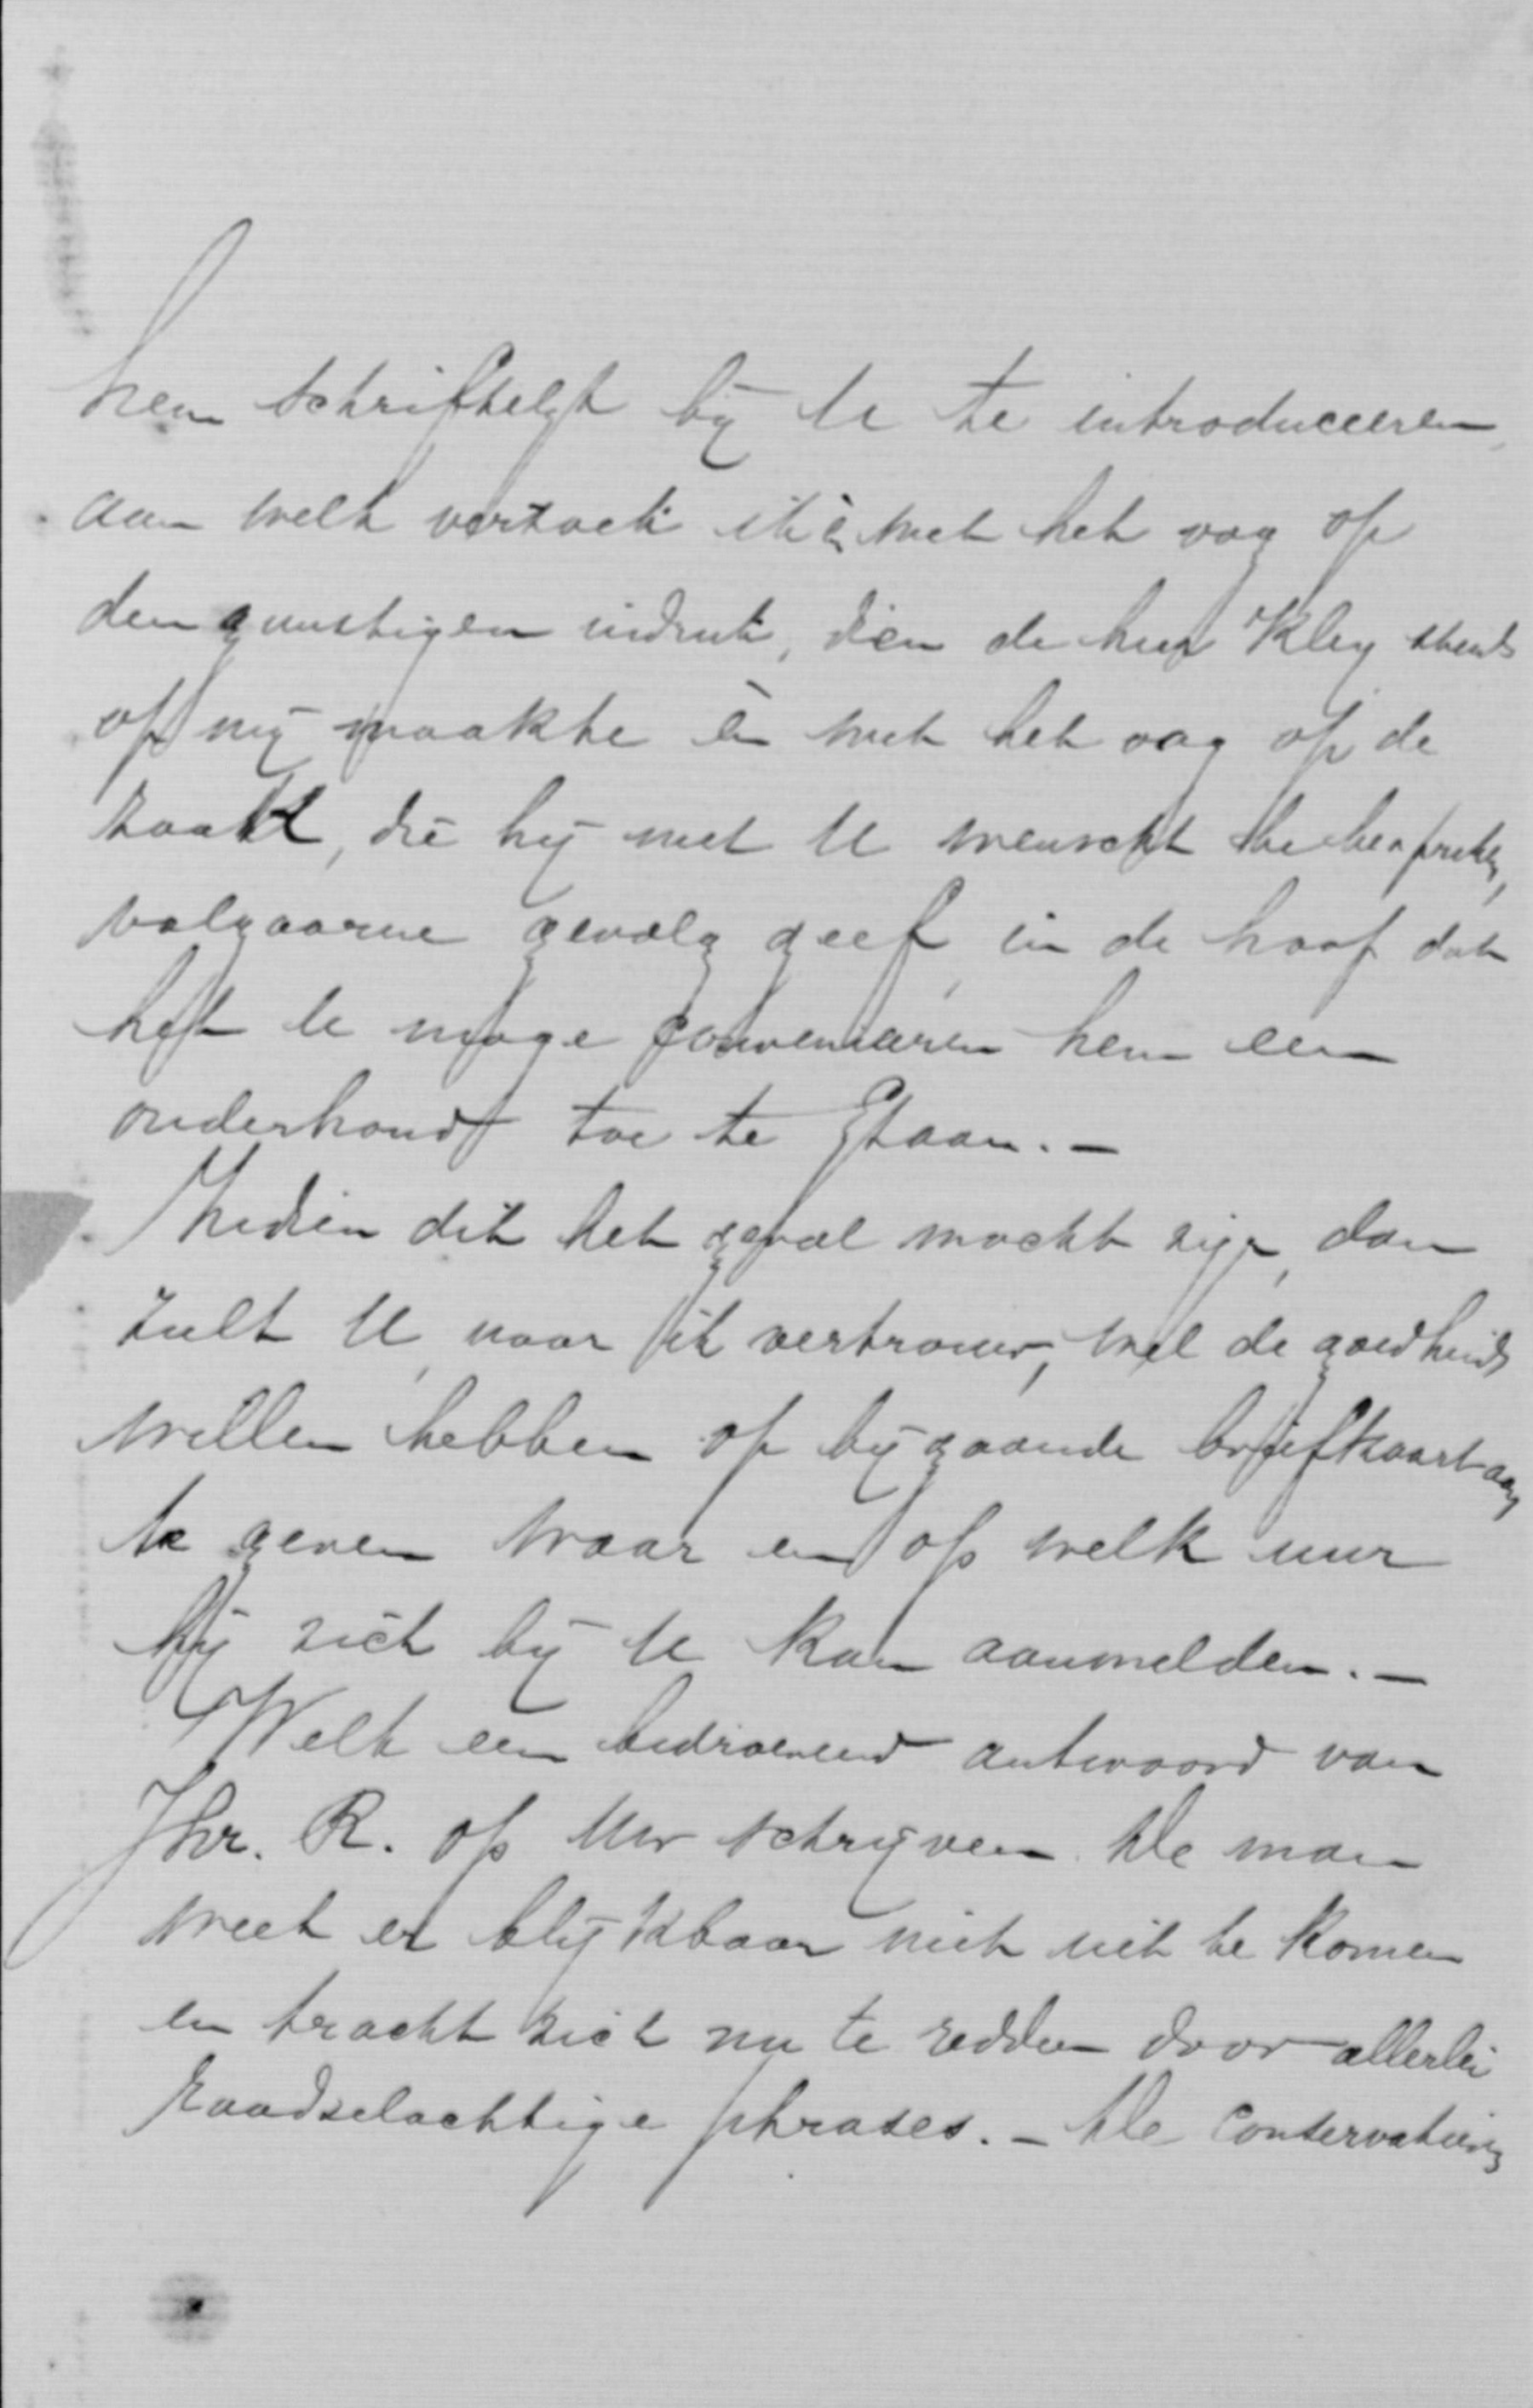 hem schriftelijk bij U te introduceeren,
aan welk verzoek ik èn met het oog op
den gunstigen indruk, dien de heer Kley steeds
op mij maakte èn met het oog op de
zaak, die hij met U wenscht te bespreken,
volgaarne gevolg geef, in de hoop dat
het U moge convenieeren hem een
onderhoud toe te staan. –
Indien dit het geval mocht zijn, dan
zult U, naar ik vertrouw, wel de goedheid
willen hebben op bijgaande briefkaart aan
te geven waar en op welk uur
hij zich bij U kan aanmelden. –
Welk een bedroevend antwoord van
Jhr. R. op Uw schrijven. De man
weet er blijkbaar niet uit te komen
en tracht zich nu te redden door allerlei
raadselachtige phrases. – De Conservatieven